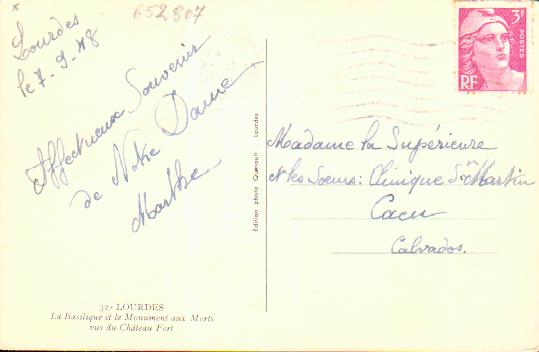 652807
Lourdes
le 7-9-48
Affectueux Souvenir
de Notre Dame
Marthe
3F
POSTES
RF
Madame la Supérieure
et les Soeurs: Clinique St Martin
Caen
Calvados.
Edition photo Quenault Lourdes
32- LOURDES
La Basilique et le Monument aux Morts
vus du Château Fort